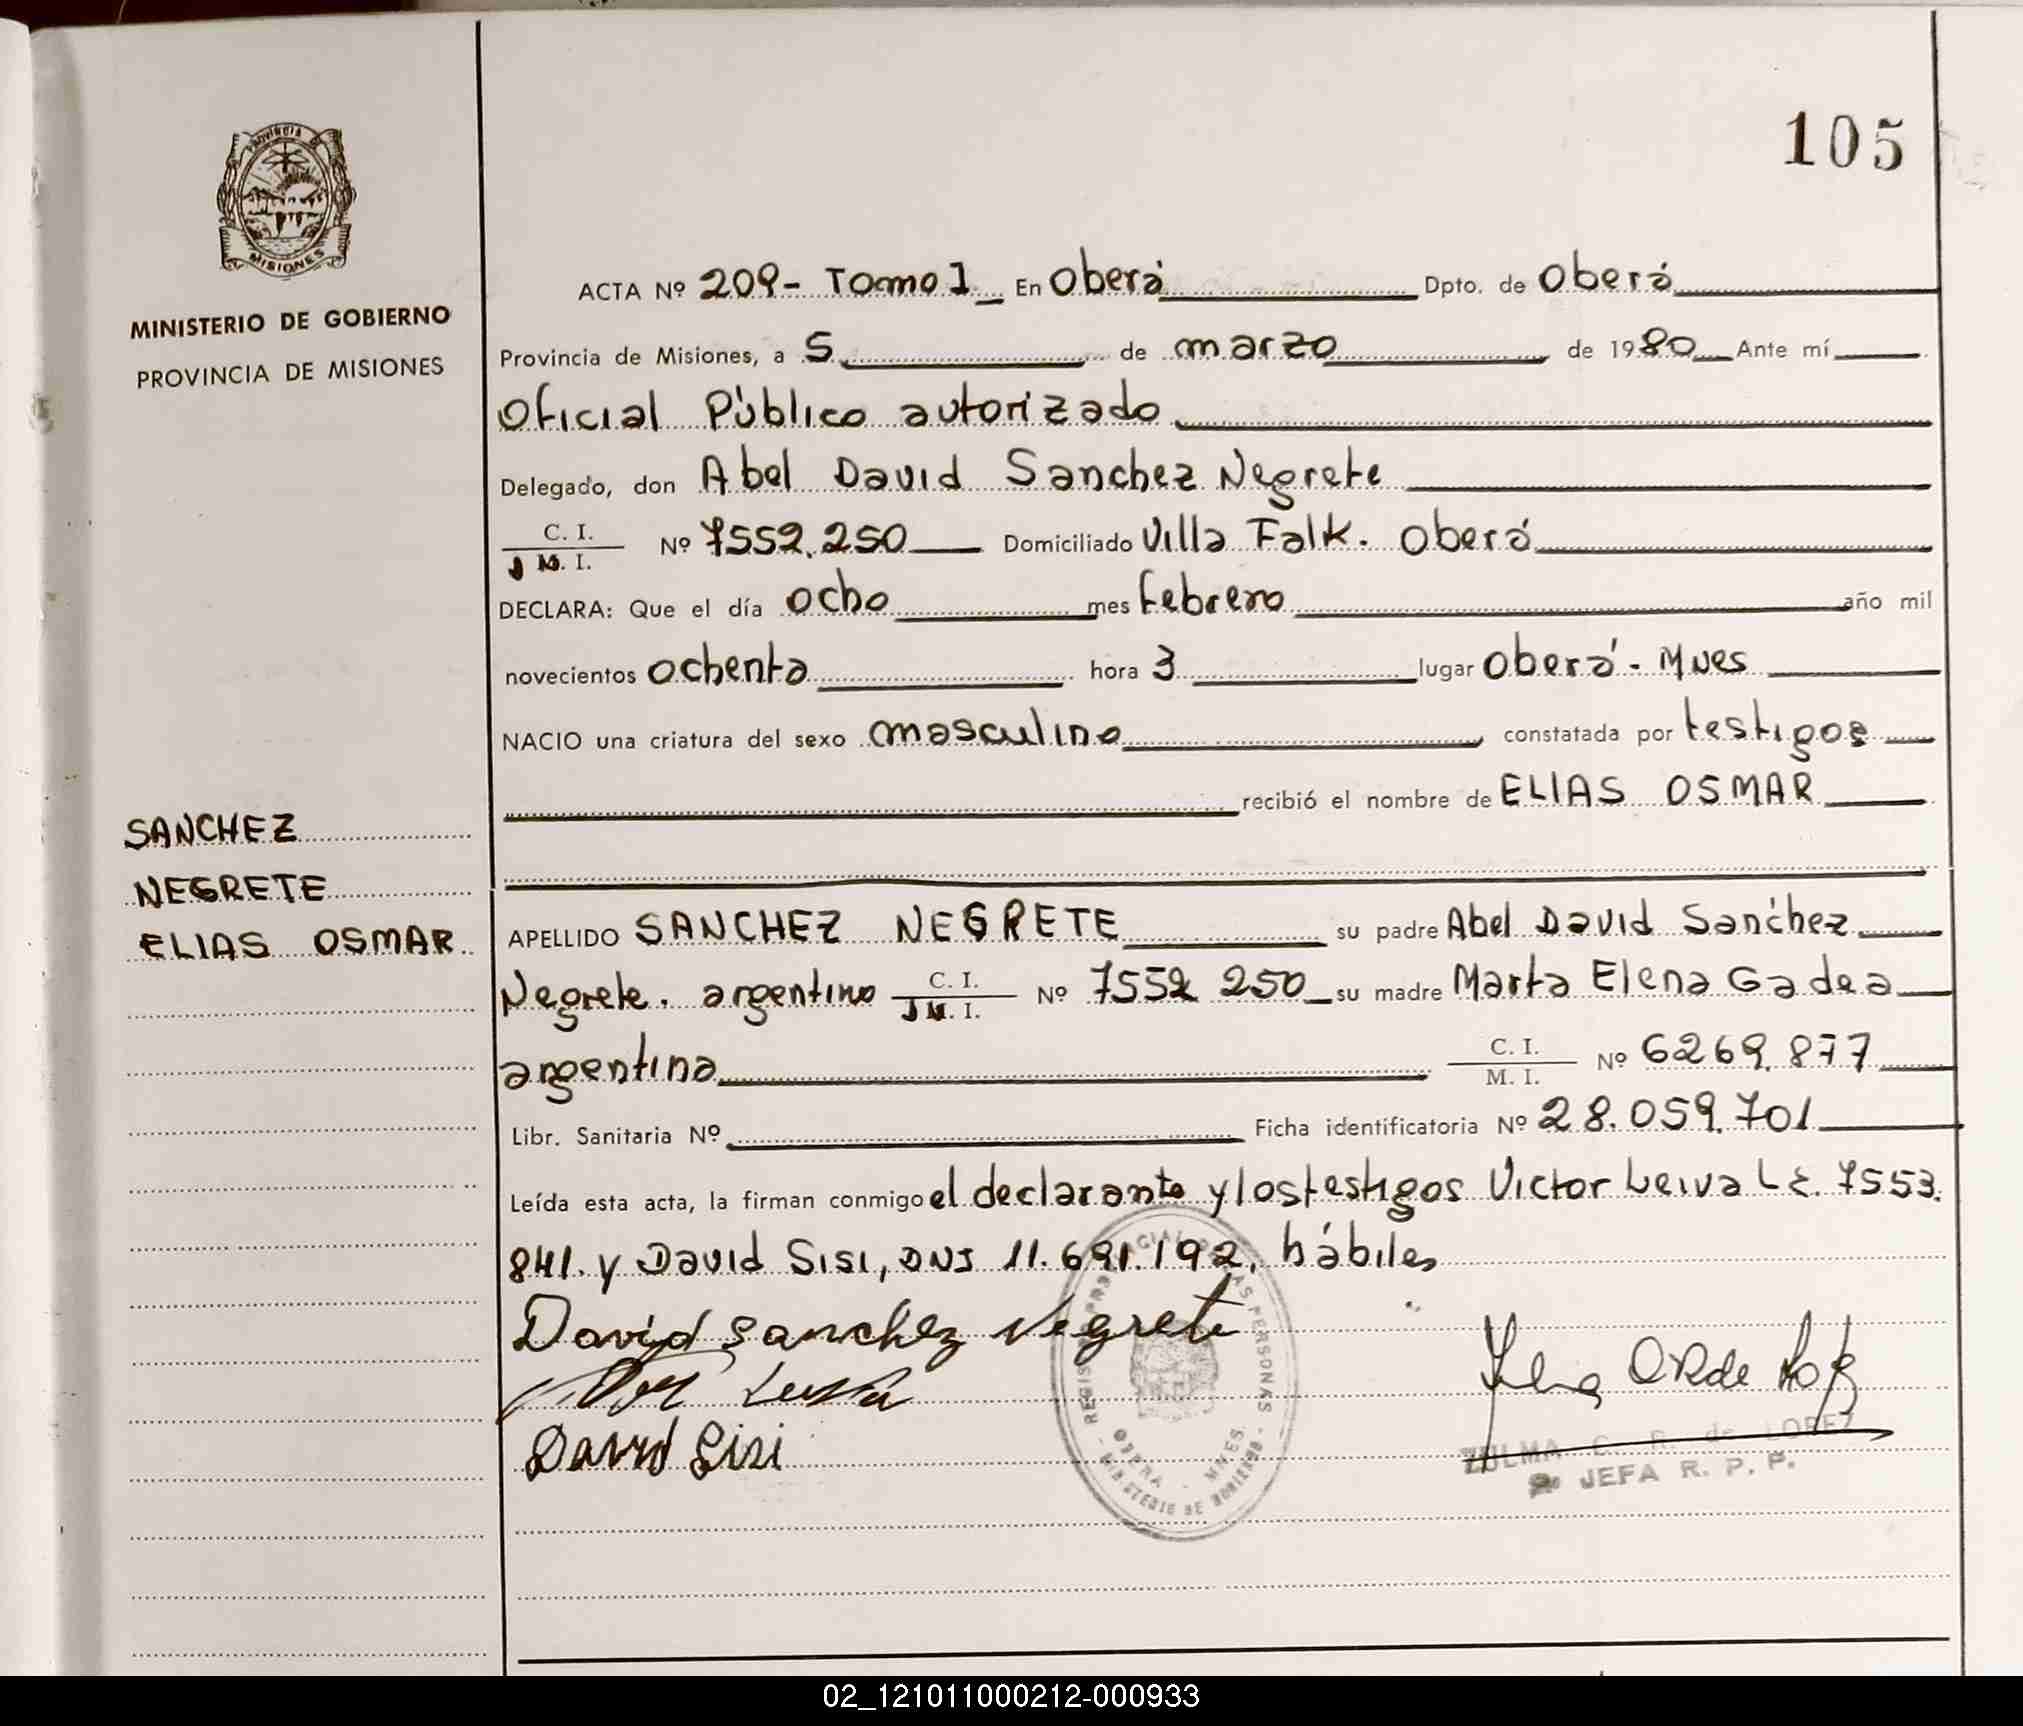 105
PROVINCIA DE
MISIONES
MINISTERIO DE GOBIERNO
PROVINCIA DE MISIONES
ACTA Nº 209- Tomo I En Oberá Dpto. de Oberá
Provincia de Misiones, a 5 de marzo de 1980 Ante mí
Oficial Público autorizado
Delegado, don Abel David Sanchez Negrete
C. I.
M. I. Nº 7552.250 Domiciliado Villa Falk. Oberá
DECLARA: Que el día ocho mes febrero año mil
novecientos ochenta hora 3 lugar Oberá - Mnes
NACIO una criatura del sexo masculino constatada por testigos
recibió el nombre de ELIAS OSMAR
SANCHEZ
NEGRETE
ELIAS OSMAR
APELLIDO SANCHEZ NEGRETE su padre Abel David Sanchez
Negrete. argentino C. I. M. I. Nº 7552 250 su madre Marta Elena Gadea
argentina C. I. M. I. Nº 6269.877
Libr. Sanitaria Nº Ficha identificatoria Nº 28.059.701
Leída esta acta, la firman conmigo el declarante y los testigos Victor Leiva L E. 7553.
841. y David Sisi, DNI 11.691.192, hábiles
David Sanchez Negrete
David Sisi
REGISTRO DE LAS PERSONAS
OBERA - MNES.
MINISTERIO DE GOBIERNO
ZULMA C. R. de LOPEZ
JEFA R. P. P.
02_121011000212-000933